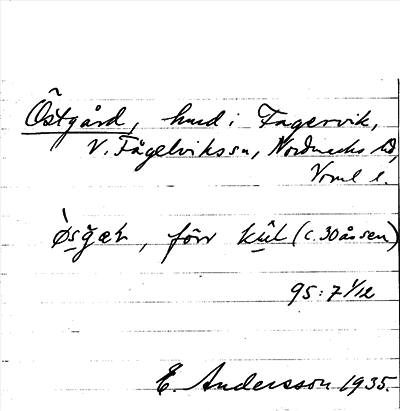 Östgård, hmd i Fagervik,
V. Fågelvikssn, Nordmarks hd,
Vrml l.
förr kûl (c. 30 år sen)
95: 7 1/12
E. Andersson 1935.